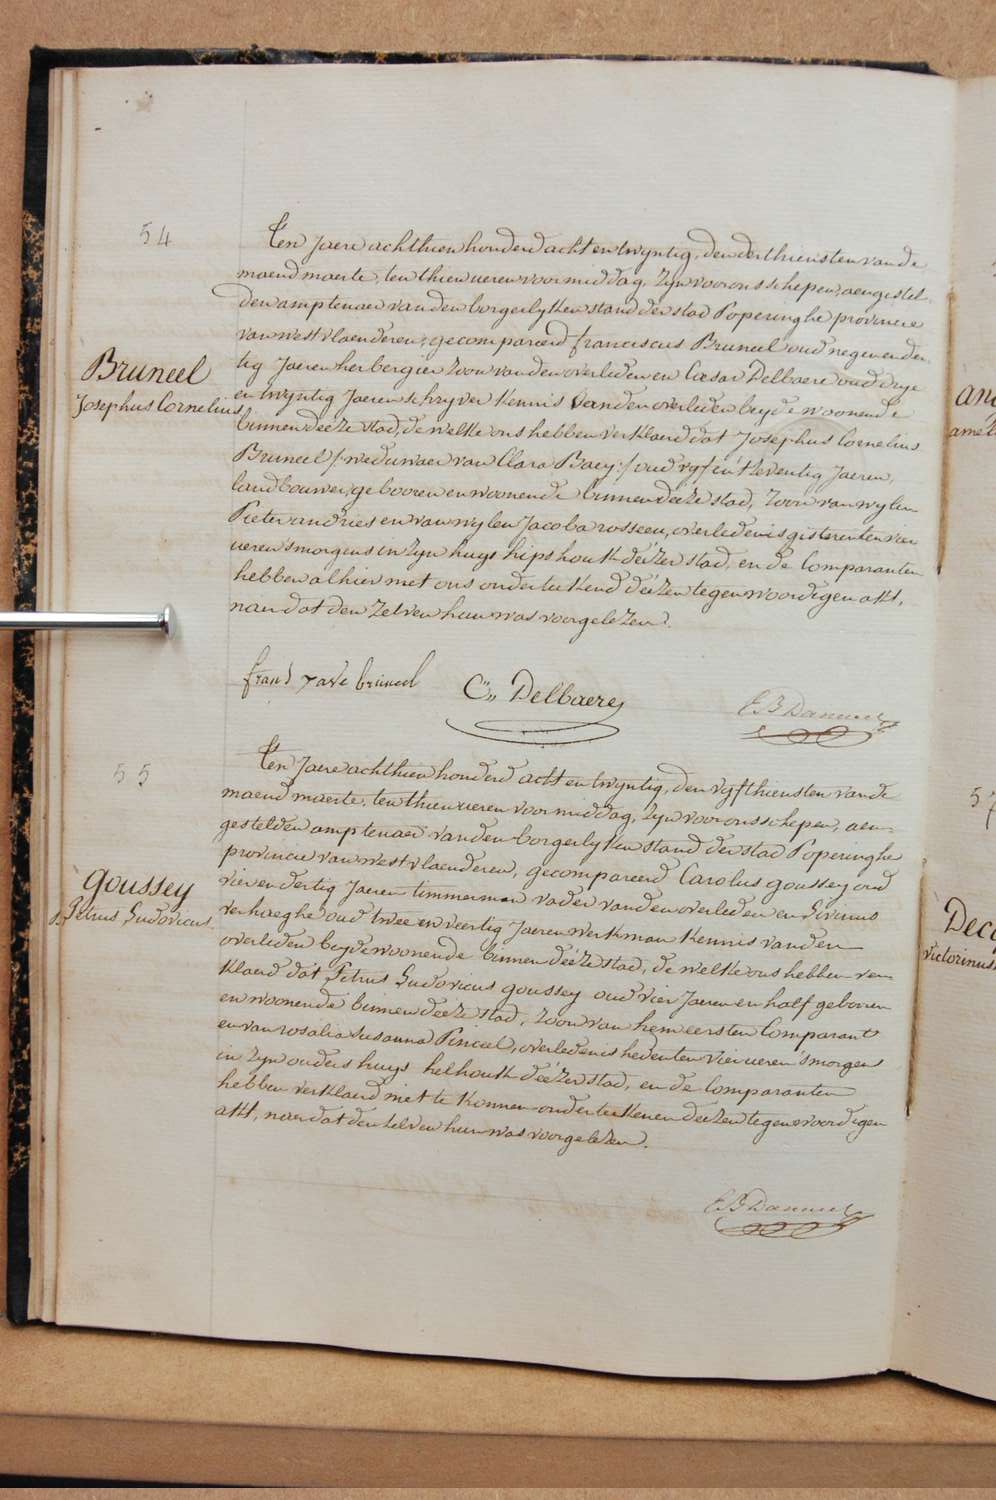 54
Bruneel
Josephus Cornelius
Ten Jaere achthien honderd acht en twyntig, den derthiensten van de
maend maerte, ten thien ueren voormiddag, zyn voor ons schepen, aengestel-
den amptenaer van den borgerlyken stand der stad Poperinghe provincie
van westvlaenderen, gecompareerd franciscus Bruneel oud negen en der-
tig Jaeren herbergier zoon van den overleden en Cæsar Delbaere oud drye
en twyntig Jaeren schryver kennis van den overleden beyde woonende
binnen deeze stad, de welke ons hebben verklaerd dat Josephus Cornelius
Bruneel /: weduwaer van Clara Baey :/ oud vyf en t'seventig Jaeren,
landbouwer, gebooren en woonende binnen deeze stad, zoon van wylen
Pieter andries en van wylen Jacoba rosseeu, overleden is gisteren ten vier
ueren 's morgens in zyn huys hipshoutk déézer stad, en de Comparanten
hebben alhier met ons onderteekend déézen tegenwoordigen akt,
naer dat den zelven hun was voorgelezen.
frans xave bruneel
C. Delbaere
55
goussey
Petrus Ludovicus
Ten Jaere achthien honderd acht en twyntig, den vyfthiensten van de
maend maerte, ten thien ueren voormiddag, zyn voor ons schepen, aen-
gestelden amptenaer van den borgerlyken stand der stad Poperinghe
provincie van westvlaenderen, gecompareerd Carolus goussey oud
vier en dertig Jaeren timmerman vader van den overleden en Livinus
verhaeghe oud twee en veertig Jaeren werkman kennis van den
overleden beyde woonende binnen dééze stad, de welke ons hebben ver-
klaerd dat Petrus Ludovicus goussey oud vier Jaeren en half gebooren
en woonende binnen deeze stad, zoon van hem eersten Comparant
en van rosalia susanna Pinceel, overleden is heden ten vier ueren 's morgens
in zyn ouders huys helhoutk déézer stad, en de Comparanten
hebben verklaerd niet te konnen onderteekenen deezen tegenwoordigen
akt, naer dat den zelven hun was voorgelezen.
57
Victorinus